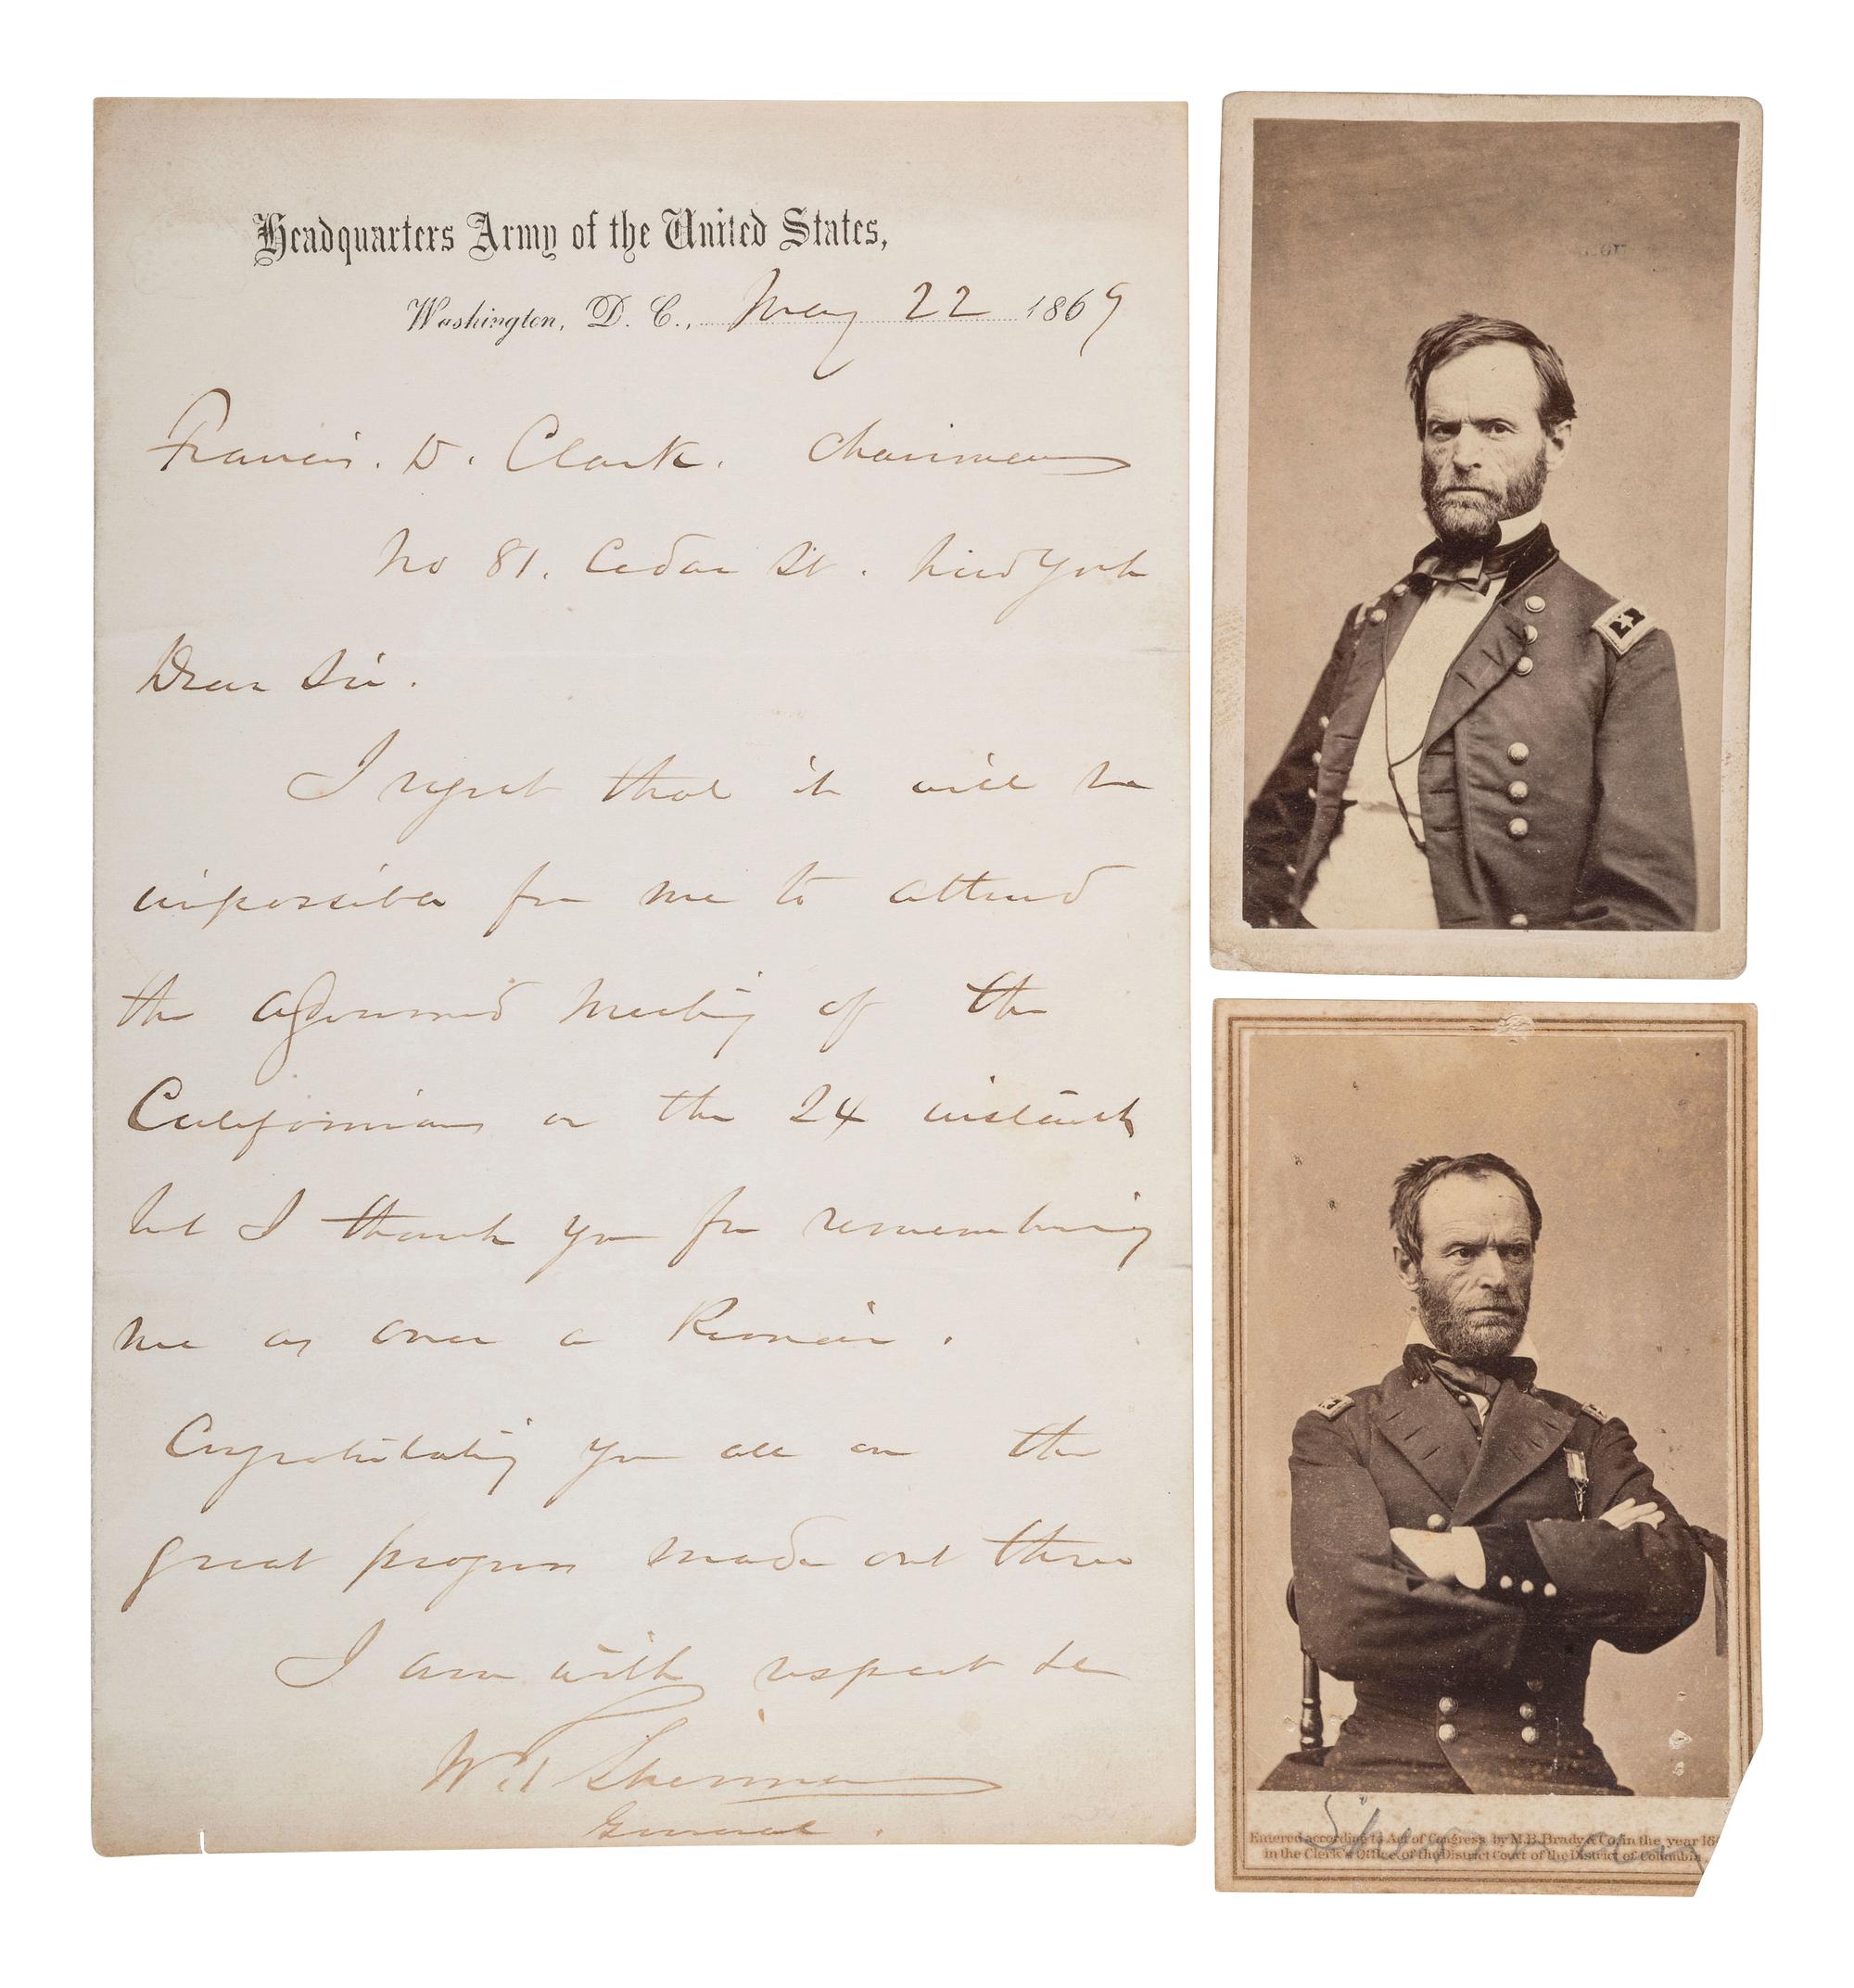 Headquarters Army of the United States,
Washington, D. C., May 22 1869
Francis. D. Clark. Chairman
No 81. Cedar St. New York
Dear Sir.
I regret that it will be
impossible for me to attend
the adjourned meeting of the
Californians on the 24 instant
but I thank you for remembering
me as once a Pioneer.
Congratulating you all on the
great progress made out there
I am with respect &c
W. T. Sherman
General.
Sherman
Entered according to Act of Congress by M.B. Brady & Co. in the year 18
in the Clerk's Office of the District Court of the District of Columbia.